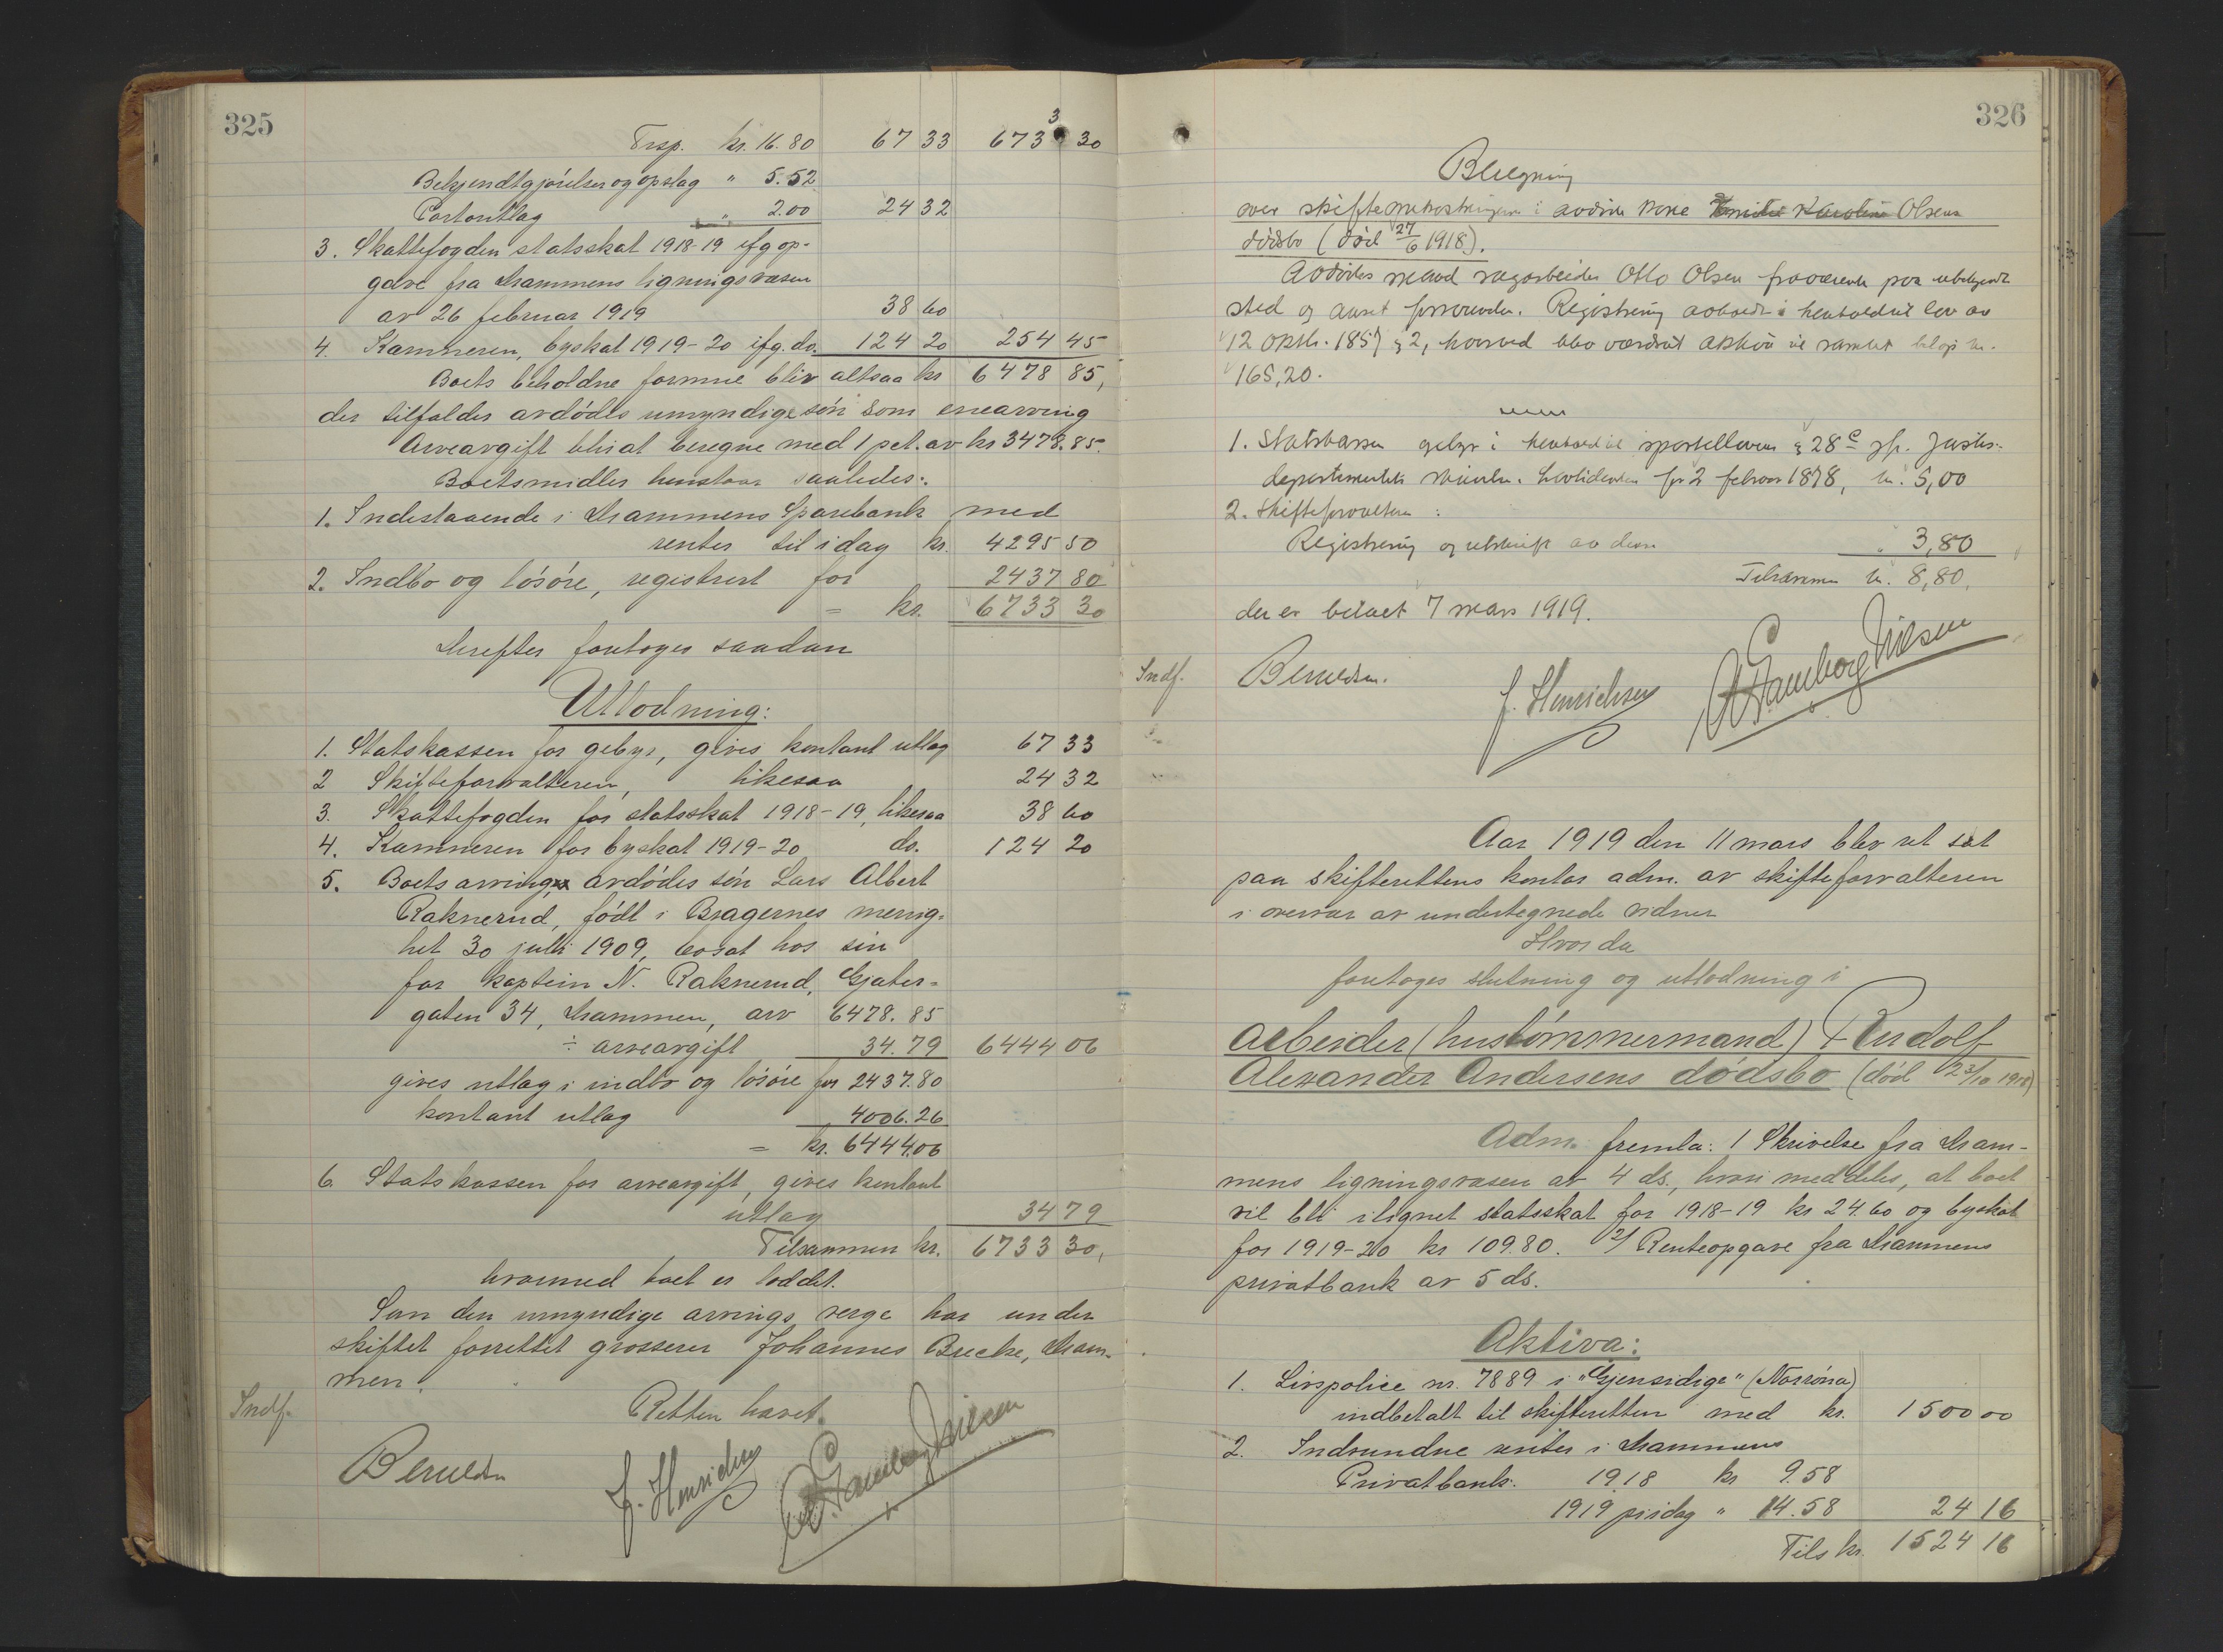 325
Trsp. kr. 16.80 67 33 6733 30
Bekjendtgjörelser og opslag " 5.52
Portoutlag " 2.00 24 32
3. Skattefogden statsskat 1918-19 ifg op-
gave fra Drammens ligningsvæsen
av 26 februar 1919 38 60
4. Kæmneren, byskat 1919-20 ifg. do. 124 20 254 45
Boets beholdne formue blir altsaa kr 6478 85,
der tilfalder avdödes umyndige sön som enearving
Arveavgift blir at beregne med 1 pct. av kr 3478.85.
Boets midler henstaar saaledes:
1. Indestaaende i Drammens Sparebank med
renter til idag kr. 4295 50
2. Indbo og lösöre, registrert for 2437 80
= kr. 6733 30
Derefter foretoges saadan
Utlodning:
1. Statskassen for gebyr, gives kontant utlæg 67 33
2 Skifteforvalteren, likesaa 24 32
3. Skattefogden for statsskat 1918-19, likesaa 38 60
4. Kæmneren for byskat 1919-20 do. 124 20
5. Boets arving, avdödes sön Lars Albert
Raknerud, födt i Bragernes menig-
het 30 juli 1909, bosat hos sin
far kaptein N. Raknerud, Gjæter-
gaten 34, Drammen, arv 6478.85
÷ arveavgift 34.79 6444 06
gives utlæg i indbo og lösöre for 2437.80
kontant utlæg 4006.26
= kr. 6444.06
6. Statskassen for arveavgift, gives kontant
utlæg 34 79
Tilsammen kr. 6733 30,
hvormed boet er loddet.
Som den umyndige arvings verge har under
skiftet forrettet grosserer Johannes Brecke, Dram-
men.
Retten hævet.
Indf.
J. Henrichsen
326
Beregning
over skifteomkostningene i avdöde kone Karoline Olsens
dödsbo (död 27/6 1918).
Avdödes mand sagarbeider Otto Olsen fraværende paa ubekjendt
sted og anset forsvunden. Registrering avholdt i henhold til lov av
12 oktbr. 1857 § 2, hvorved blev værdsat aktiva til samlet beløp kr.
165,20.
1. Statskassen gebyr i henhold til sportelloven § 28 c jfr. Justis-
departementets februar 1878, kr. 5,00
2. Skifteforvalteren:
Registrering og utskrift av den " 3,80
Tilsammen kr. 8,80,
der er betalt 7 mars 1919.
Indf.
J. Henrichsen
Aar 1919 den 11 mars blev ret sat
paa skifterettens kontor adm. av skifteforvalteren
i overvær av undertegnede vidner
Hvorda
foretoges slutning og utlodning i
Arbeider (hustömmermand) Rudolf
Alexander Andersens dödsbo (död 23/10 1918)
Adm. fremla: 1 Skrivelse fra Dram-
mens ligningsvæsen av 4 ds., hvori meddeles, at boet
vil bli ilignet statsskat for 1918-19 kr 24.60 og byskat
for 1919-20 kr 109.80. 2/ Renteopgave fra Drammens
privatbank av 5 ds.
Aktiva:
1. Livspolice nr. 7889 i "Gjensidige" (Norröna)
indbetalt til skifteretten med kr. 1500 00
2. Indvundne renter i Drammens
Privatbank: 1918 kr 9.58
1919 pr idag " 14.58 24 16
Tils kr. 1524 16